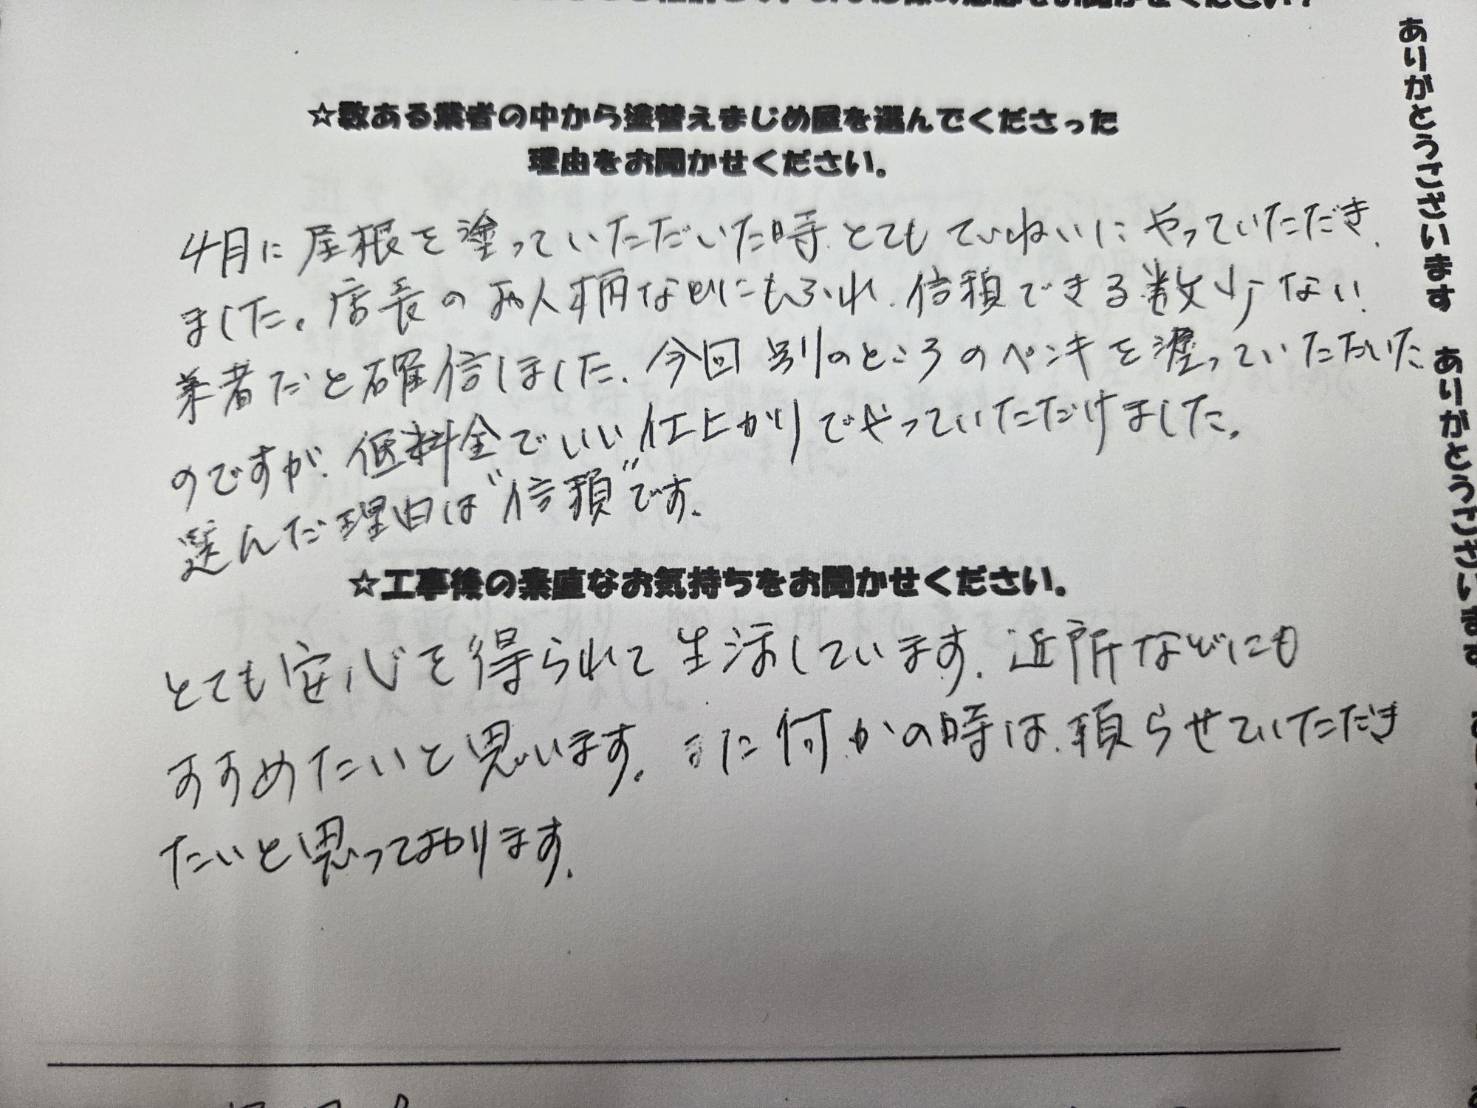 ☆数ある業者の中から塗替えまじめ屋を選んでくださった
理由をお聞かせください。
4月に屋根を塗っていただいた時、とてもていねいにやっていただき
ました。店長のお人柄などにもふれ、信頼できる数少ない
業者だと確信しました。今回別のところのペンキを塗っていただいた
のですが、低料金でいい仕上がりでやっていただけました。
選んだ理由は"信頼"です。
☆工事後の素直なお気持ちをお聞かせください。
とても安心を得られて生活しています。近所などにも
すすめたいと思います。また何かの時は、頼らせていただき
たいと思っております。
ありがとうございます ありがとうございます